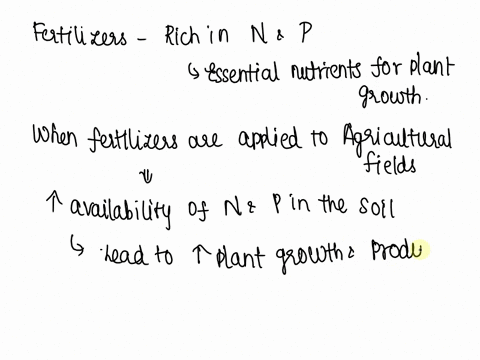 Fertilizers - Rich in N & P
↳ Essential nutrients for plant
growth.
When fertilizers are applied to Agricultural
fields
⇓
↑ availability of N & P in the soil
↳ Lead to ↑ plant growth & Produ